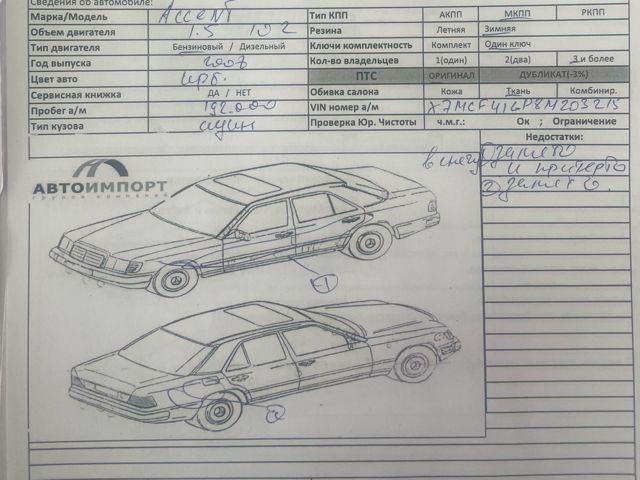 Сведения об автомобиле:
Марка/Модель Accent Тип КПП АКПП МКПП РКПП
Объем двигателя 1.5 102 Резина Летняя Зимняя
Тип двигателя Бензиновый / Дизельный Ключи комплектность Комплект Один ключ
Год выпуска 2008 Кол-во владельцев 1(один) 2(два) 3 и более
Цвет авто ПТС ОРИГИНАЛ ДУБЛИКАТ(-3%)
Сервисная книжка ДА / НЕТ Обивка салона Кожа Ткань Комбинир.
Пробег а/м 192.000 VIN номер а/м X7MCF41GP8M203215
Тип кузова Проверка Юр. Чистоты ч.м.г.: Ок ; Ограничение
Недостатки:
в снегу ① замято
и притерто
② замято.
АВТОИМПОРТ
группа компаний
1
2